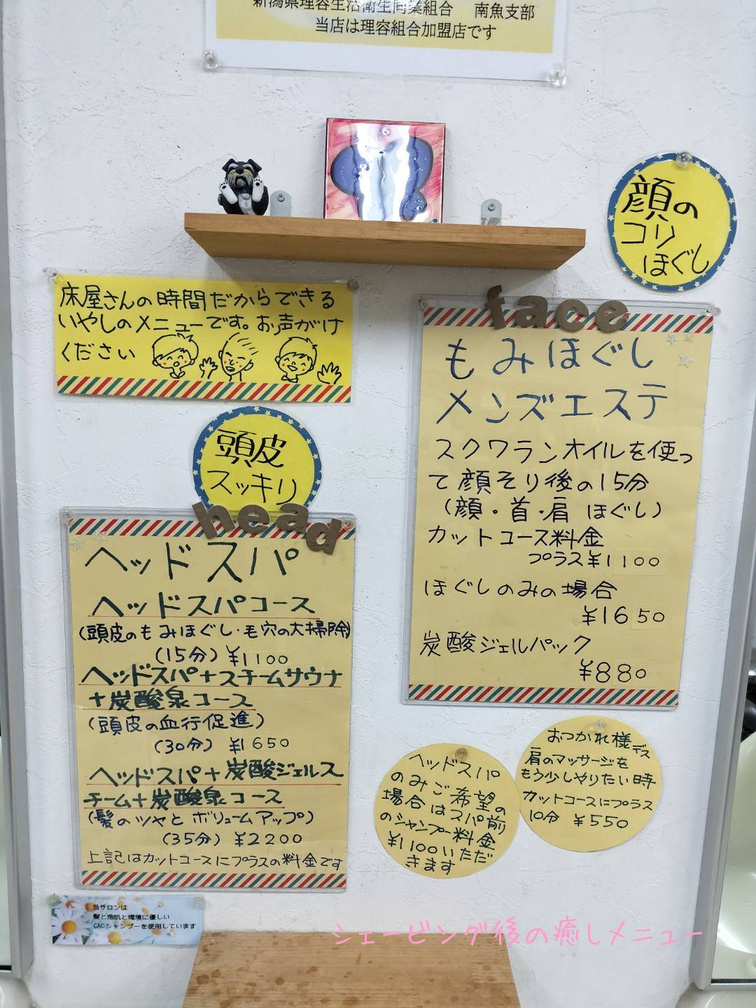 新潟県理容生活衛生同業組合 南魚支部
当店は理容組合加盟店です
顔の
コリ
ほぐし
床屋さんの時間だからできる
いやしのメニューです。お声がけ
ください
face
もみほぐし
メンズエステ
スクワランオイルを使っ
て顔そり後の15分
(顔・首・肩 ほぐし)
カットコース料金
プラス¥1100
ほぐしのみの場合
¥1650
炭酸ジェルパック
¥880
頭皮
スッキリ
head
ヘッドスパ
ヘッドスパコース
(頭皮のもみほぐし・毛穴の大掃除)
(15分) ¥1100
ヘッドスパ+スチームサウナ
+炭酸泉コース
(頭皮の血行促進)
(30分) ¥1650
ヘッドスパ+炭酸ジェルス
チーム+炭酸泉コース
(髪のツヤとボリュームアップ)
(35分) ¥2200
上記はカットコースにプラスの料金です
ヘッドスパ
のみご希望の
場合はスパ前
のシャンプー料金
¥1100いただ
きます
おつかれ様デス
肩のマッサージを
もう少しやりたい時
カットコースにプラス
10分 ¥550
当サロンは
髪と地肌と環境に優しい
CACシャンプーを使用しています
シェービング後の癒しメニュー